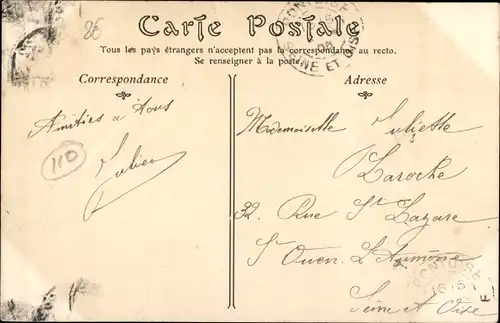 86
Carte Postale
Tous les pays étrangers n'acceptent pas la correspondance au recto.
Se renseigner à la poste.
Correspondance
Adresse
Amitiés à tous
Julien
110
Mademoiselle Juliette
Laroche
32. Rue St Lazare
St Ouen L'Aumône
Seine et Oise
SEINE ET OISE
PONTOISE